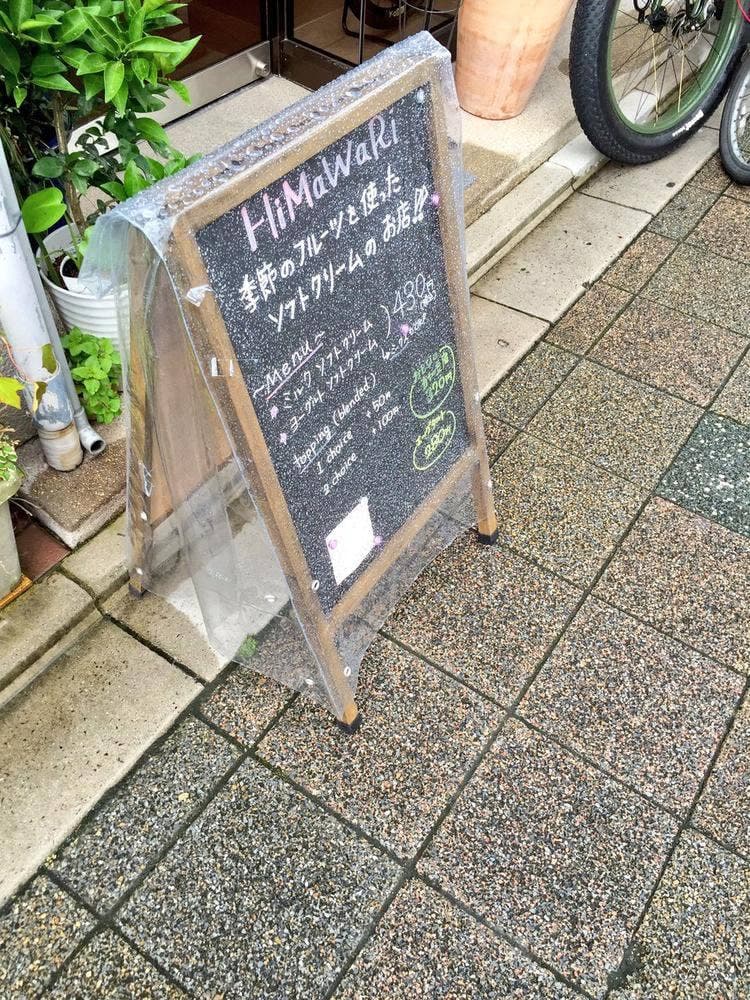 HiMaWaRi
季節のフルーツを使った
ソフトクリームの お店!!
~Menu~
ミルク ソフトクリーム
ヨーグルト ソフトクリーム
430円
topping (blended)
1 choice +50円
2 choice +100円